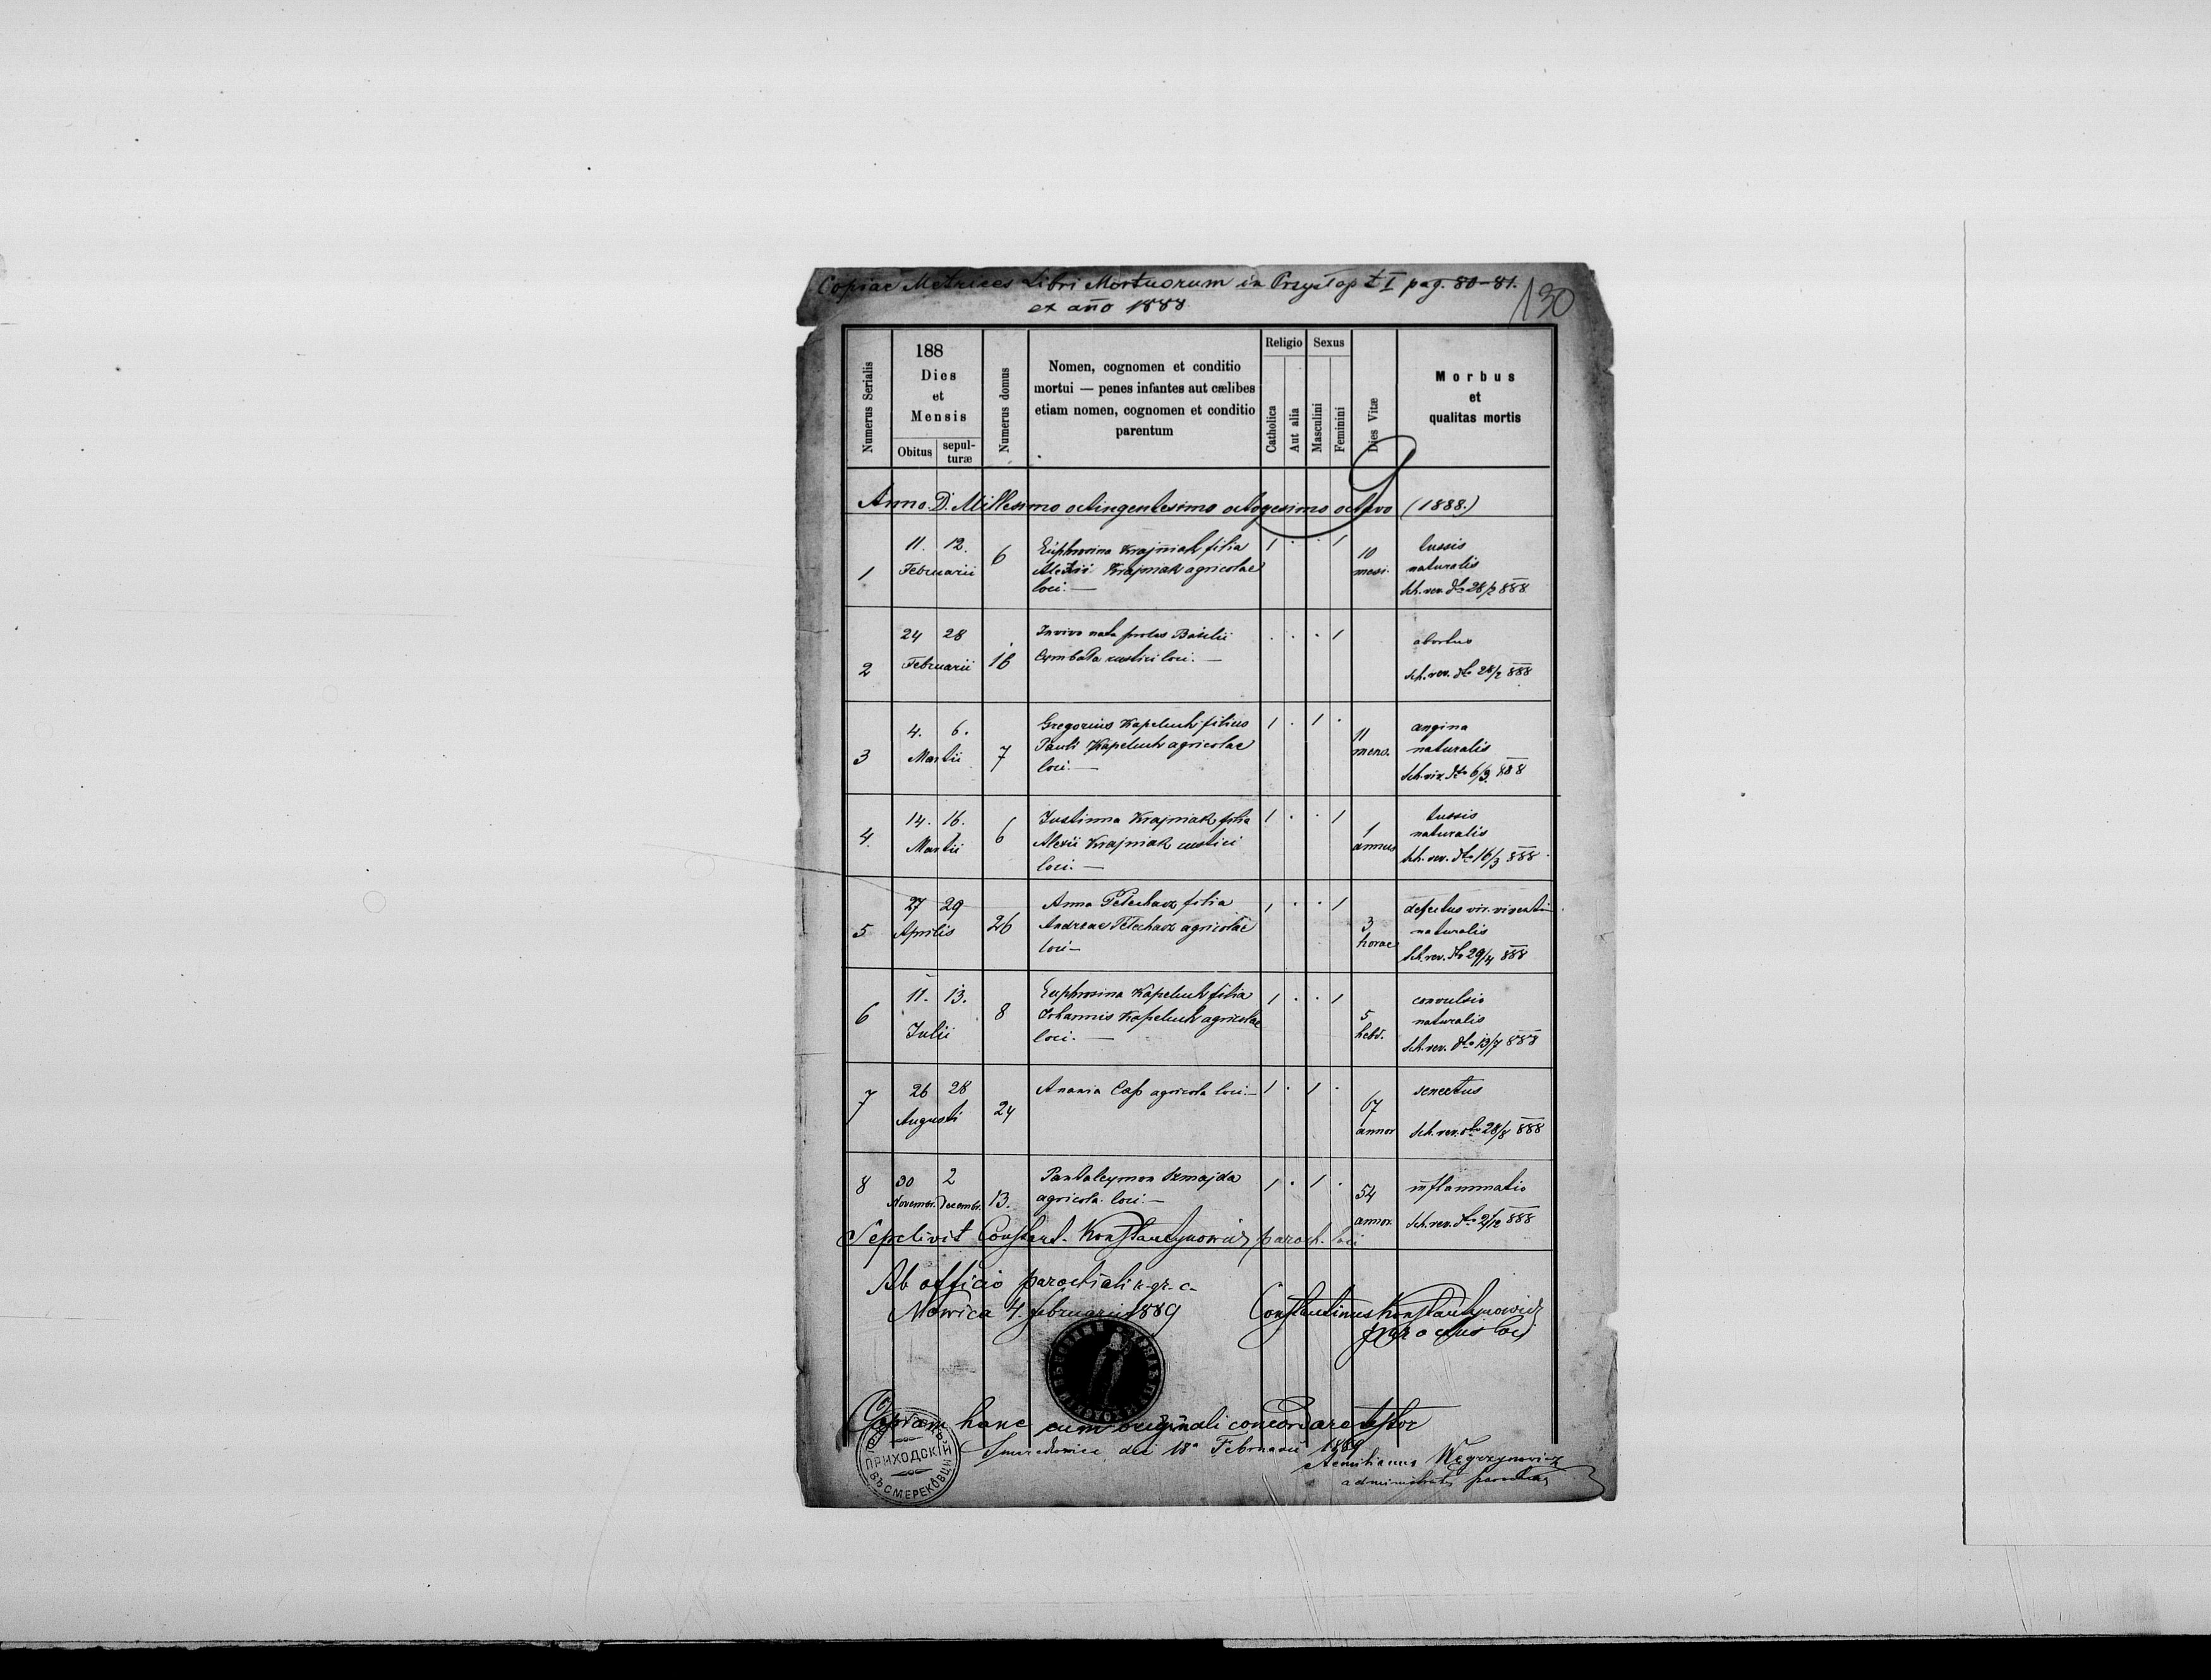 Copiae Metrices Libri Mortuorum in Przysłop t I pag. 80-81.
ex año 1888
130
Numerus Serialis
188
Dies
et
Mensis
Obitus
sepul-
turæ
Numerus domus
Nomen, cognomen et conditio
mortui — penes infantes aut cælibes
etiam nomen, cognomen et conditio
parentum
Religio
Catholica
Aut alia
Sexus
Masculini
Feminini
Dies Vitæ
Morbus
et
qualitas mortis
Anno D. Millesimo octingentesimo octogesimo octavo (1888.)
1
11. 12.
Februarii
6
Euphrosina Krajniak filia
Alexii Krajniak agricolae
loci.—
1 . . 1
10
mesi.
tussis
naturalis
Sch. rev. dto 28/2 888
2
24 28
Februarii
16
In vivo nata proles Basilii
Cymbala rustici loci.—
. . . 1
abortus
Sch. rev. dto 28/2 888
3
4. 6.
Martii
7
Gregorius Kapeluch filius
Pauli Kapeluch agricolae
loci.—
1 . 1 .
11
mens.
angina
naturalis
Sch. rev. dto 6/3 888
4.
14. 16.
Martii
6
Justinna Krajniak filia
Alexii Krajniak rustici
loci.—
1 . . 1
1
annus
tussis
naturalis
Sch. rev. dto 16/3 888
5
27 29
Aprilis
26
Anna Telechacz filia
Andreae Telechacz agricolae
loci—
1 . . 1
3
horae
defectus vir.
naturalis
Sch. rev. dto 29/4 888
6
11. 13.
Julii
8
Euphrosina Kapeluch filia
Johannis Kapeluch agricolae
loci.—
1 . . 1
5
hebd.
convulsio
naturalis
Sch. rev. dto 13/7 888
7
26 28
Augusti
24
Anania Cap agricola loci.—
1 . 1 .
67
annor
senectus
Sch. rev. dto 28/8 888
8
30 2
Novembr. Decembr.
13.
Pantaleymon Szmajda
agricola loci.—
1 . 1 .
54
annor.
inflammatio
Sch. rev. dto 2/12 888
Sepelivit Constant. Konstantynowicz paroch. loci
Ab officio parochiali r. gr. c.
Nowica 4. februarii 1889
Constantinus Konstantynowicz
parochus loci
Copiam hanc cum originali concordare testor
Smerekowiec die 18a Februarii 1889
Aemilianus Węgrzynowicz
administrator parochiae
ПРИХОДСКІЙ
ВЪ СМЕРЕКОВЦИ